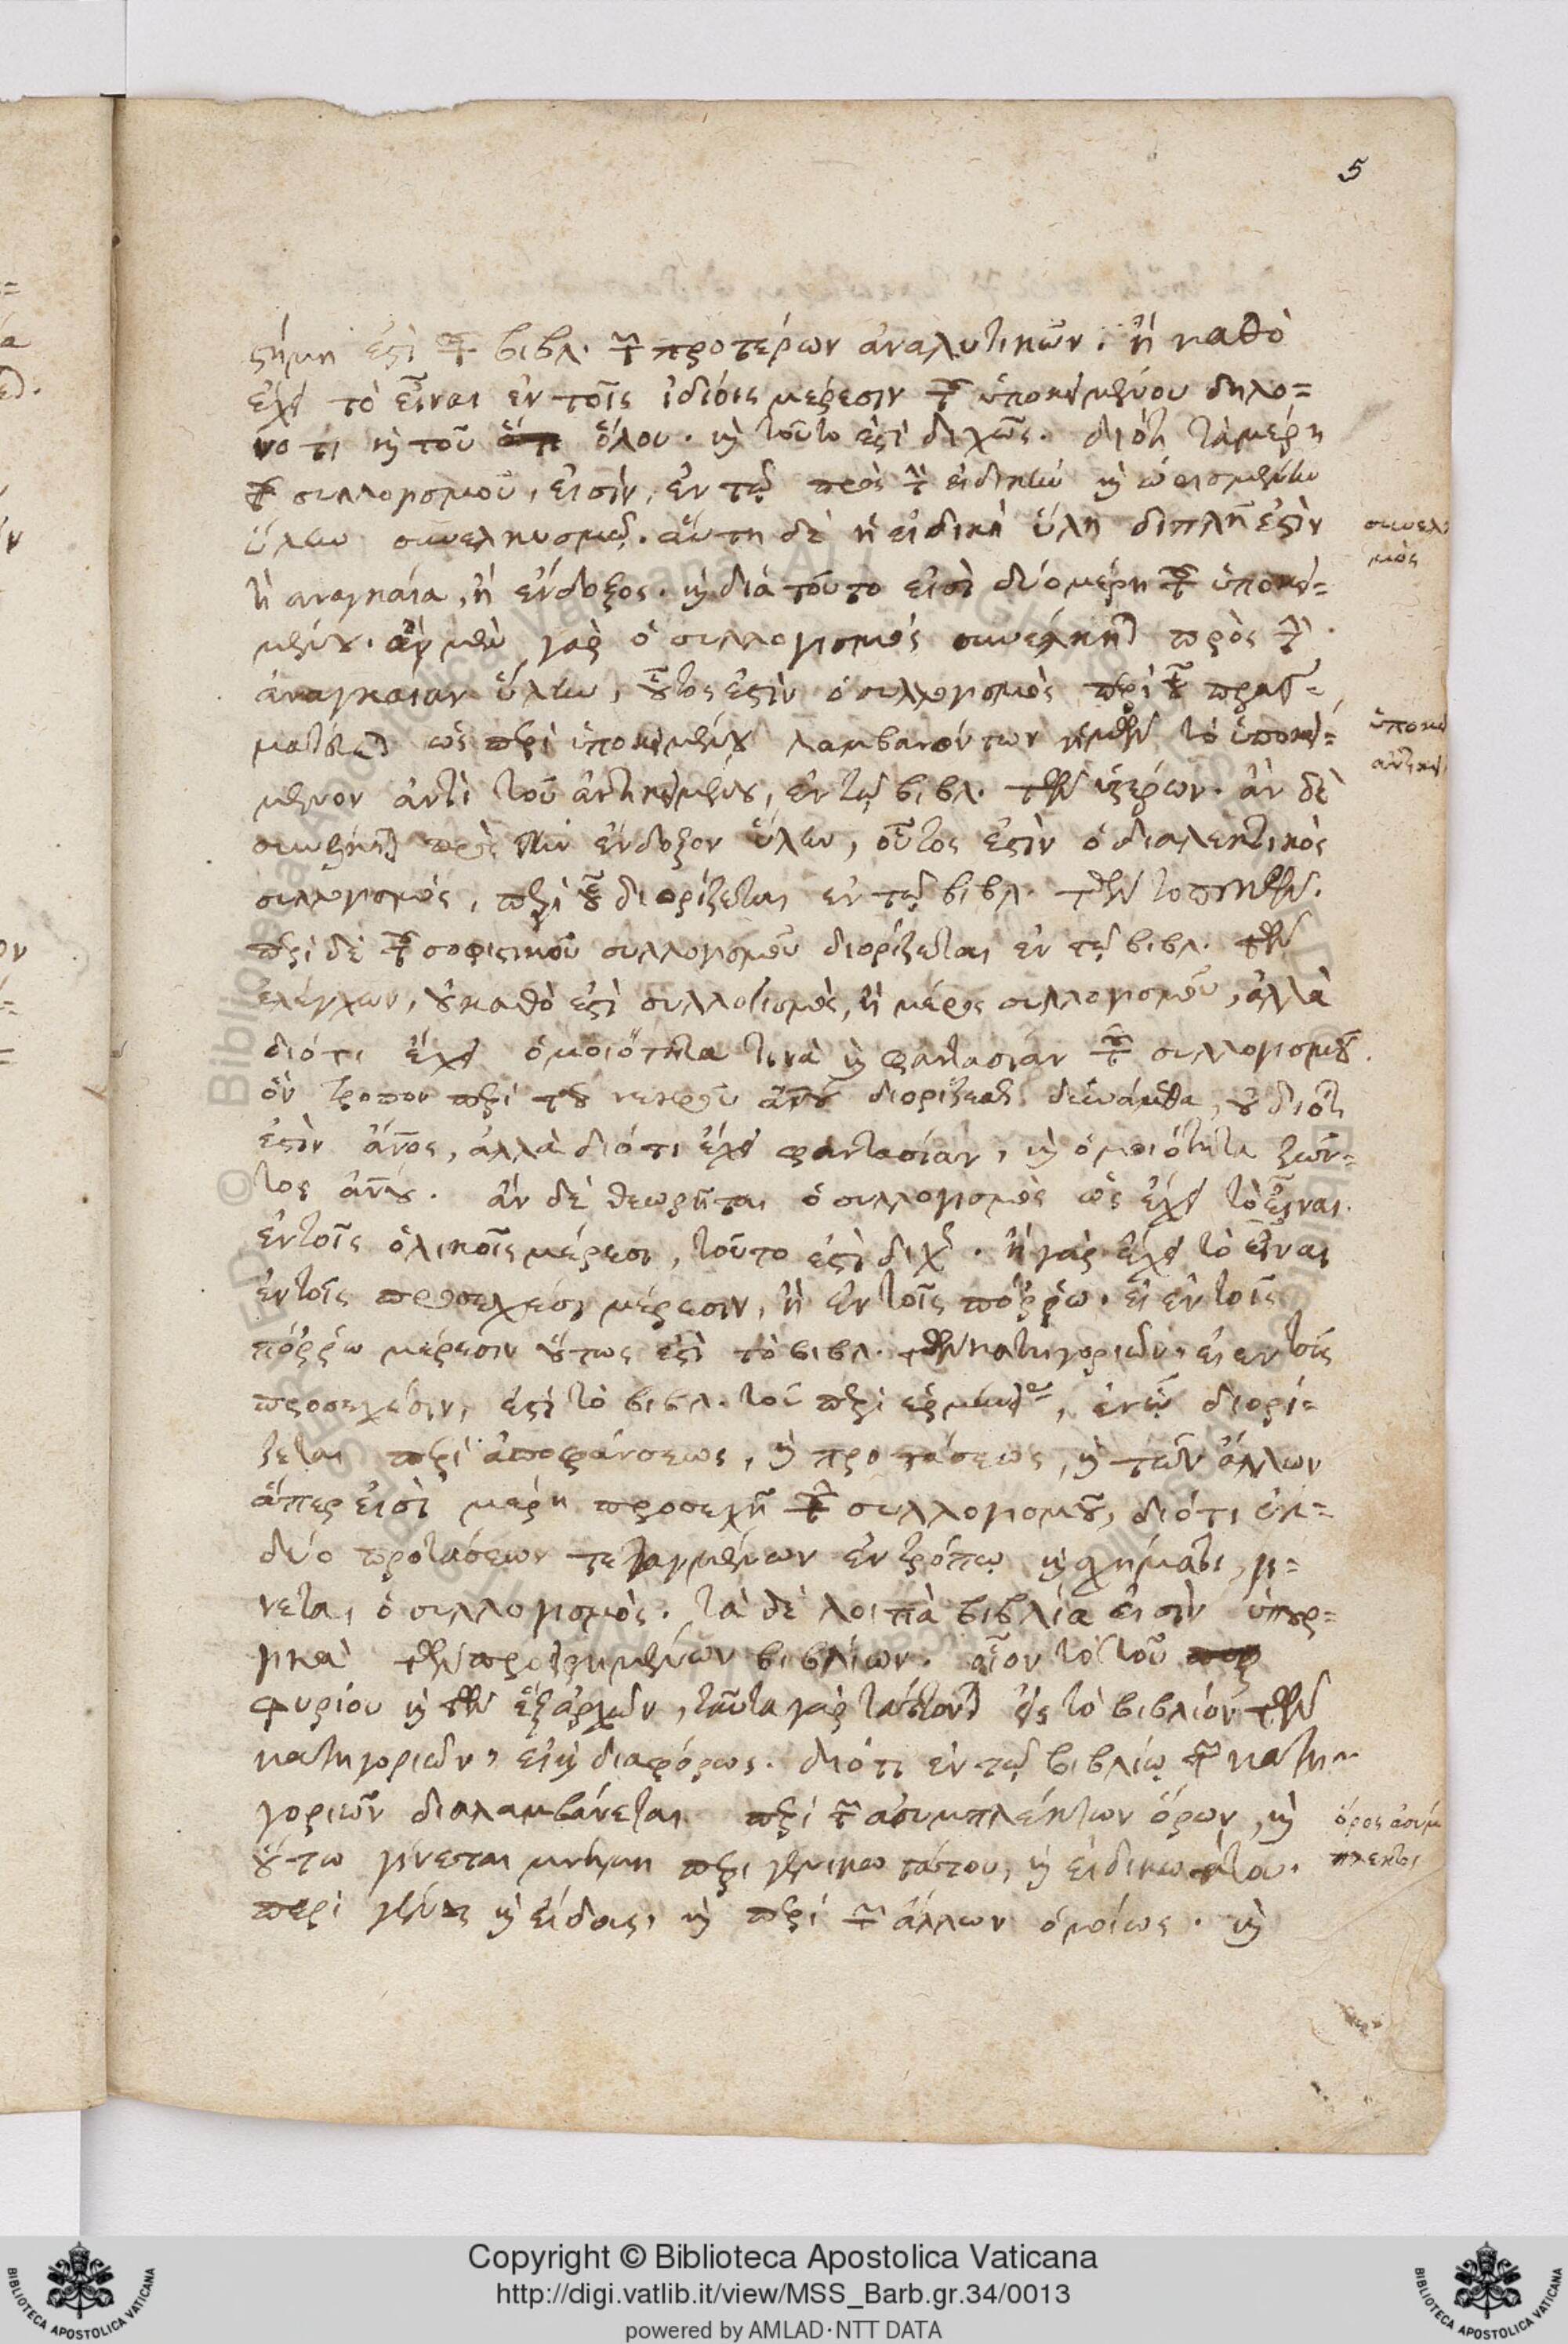 5
στήμη ἐστὶ τοῦ βιβλ. τῶν προτέρων ἀναλυτικῶν. ἢ καθὸ
ἔχει τὸ εἶναι ἐν τοῖς ἰδίοις μέρεσιν τοῦ ὑποκειμένου δηλο=
νο τι καὶ τοῦ ὅλου. καὶ τοῦτο ἐστὶ διχῶς. διότι τὰ μέρη
τοῦ συλλογισμοῦ, εἰσὶν, ἐν τῷ πρὸς τὴν εἰδικὴν καὶ ὡρισμένην
ὕλην συνελκυσμῷ. αὕτη δὲ ἡ εἰδικὴ ὕλη διπλῆ ἐστὶν
ἢ αναγκαία, ἢ ἔνδοξος. καὶ διὰ τοῦτο εἰσὶ δύο μέρη τοῦ ὑποκει=
μένου. ἂν μὲν γὰρ ὁ συλλογισμὸς συνέλκηται πρὸς τὴν
ἀναγκαίαν ὕλην, οὗτος ἐστὶν ὁ συλλογισμὸς περὶ οὗ πραγ=
ματεύεται ὡς περὶ ὑποκειμένου λαμβανόντων ἡμῶν τὸ ὑποκεί=
μενον ἀντὶ τοῦ ἀντικειμένου, ἐν τῷ βιβλ. τῶν ὑστέρων. ἂν δὲ
πρὸς τὴν ἔνδοξον ὕλην, οὗτος ἐστὶν ὁ διαλεκτικὸς
συλλογισμὸς, περὶ οὗ διορίζεται ἐν τῷ βιβλ. τῶν τοπικῶν.
περὶ δὲ τοῦ σοφιστικοῦ συλλογισμοῦ διορίζεται ἐν τῷ βιβλ. τῶν
ἐλέγχων, οὐ καθὸ ἐστὶ συλλογισμὸς, ἢ μέρος συλλογισμοῦ, ἀλλὰ
διότι ἔχει ὁμοιότητα τινὰ καὶ φαντασίαν τοῦ συλλογισμοῦ.
ὃν τροπον περὶ τοῦ νεκροῦ ἀνου διορίζεσθαι δυνάμεθα, οὐ διότι
ἐστὶν ἄνος, ἀλλὰ διότι ἔχει φαντασίαν, καὶ ὁμοιότητα ζῶν=
τος ἀνου. ἂν δὲ θεωρῆται ὁ συλλογισμὸς ὡς ἔχει τὸ εἶναι
ἐν τοῖς ὁλικοῖς μέρεσι, τοῦτο ἐστὶ διχῶς. ἢ γὰρ ἔχει τὸ εἶναι
ἐν τοῖς προσεχέσι μέρεσιν, ἢ ἐν τοῖς πόῤῥω. εἰ ἐν τοῖς
πόῤῥω μέρεσιν οὕτως ἐστὶ τὸ βιβλ. τῶν κατηγοριῶν. εἰ εν τοῖς
προσεχέσιν, ἐστὶ τὸ βιβλ. τοῦ περὶ ἑρμηνείας, ἐν ᾧ διορί=
ζεται περὶ ἀποφάνσεως, καὶ προτάσεως, καὶ τῶν ἄλλων
ἅπερ εἰσὶ μέρη προσεχῆ τοῦ συλλογισμοῦ, διότι ἐκ=
δύο προτάσεων τεταγμένων ἐν τρόπῳ καὶ σχήματι, γί=
νεται ὁ συλλογισμὸς. τὰ δὲ λοιπὰ βιβλία εἰσὶν ὑπουρ=
γικὰ τῶν προειρημένων βιβλίων. οἷον τὸ τοῦ πορ
φυρίου καὶ τῶν ἓξ ἀρχῶν, ταῦτα γὰρ τάττονται εἰς τὸ βιβλίον τῶν
κατηγοριῶν, εἰ καὶ διαφόρως. διότι ἐν τῷ βιβλίῳ τῶν κατη=
γοριῶν διαλαμβάνεται περὶ τῶν ἀσυμπλέκτων ὅρων, καὶ
οὕτω γίνεται μνήμη περὶ γενικωτάτου, καὶ εἰδικωτάτου.
περὶ γένους καὶ εἴδους, καὶ περὶ τῶν ἄλλων ὁμοίως. καὶ
συνελκ
μὸς
ὑποκεί
ἀντικεί
ὅρος ἀσύμ
πλεκτος
Copyright © Biblioteca Apostolica Vaticana
http://digi.vatlib.it/view/MSS_Barb.gr.34/0013
powered by AMLAD·NTT DATA
BIBLIOTECA APOSTOLICA VATICANA
BIBLIOTECA APOSTOLICA VATICANA